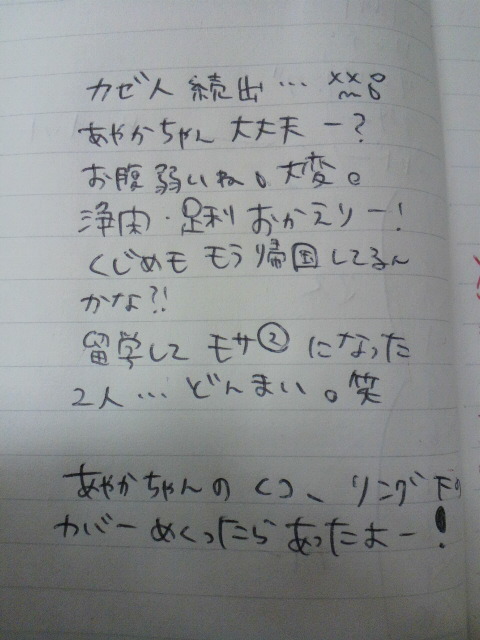 カゼ人 続出…
あやかちゃん 大丈夫ー?
お腹弱いね。大変。
足利 おかえりー!
くじめも もう帰国してるん
かな?!
留学して モサ② になった
2人… どんまい。笑
あやかちゃんの くつ、リング
カバーめくったらあったよー!